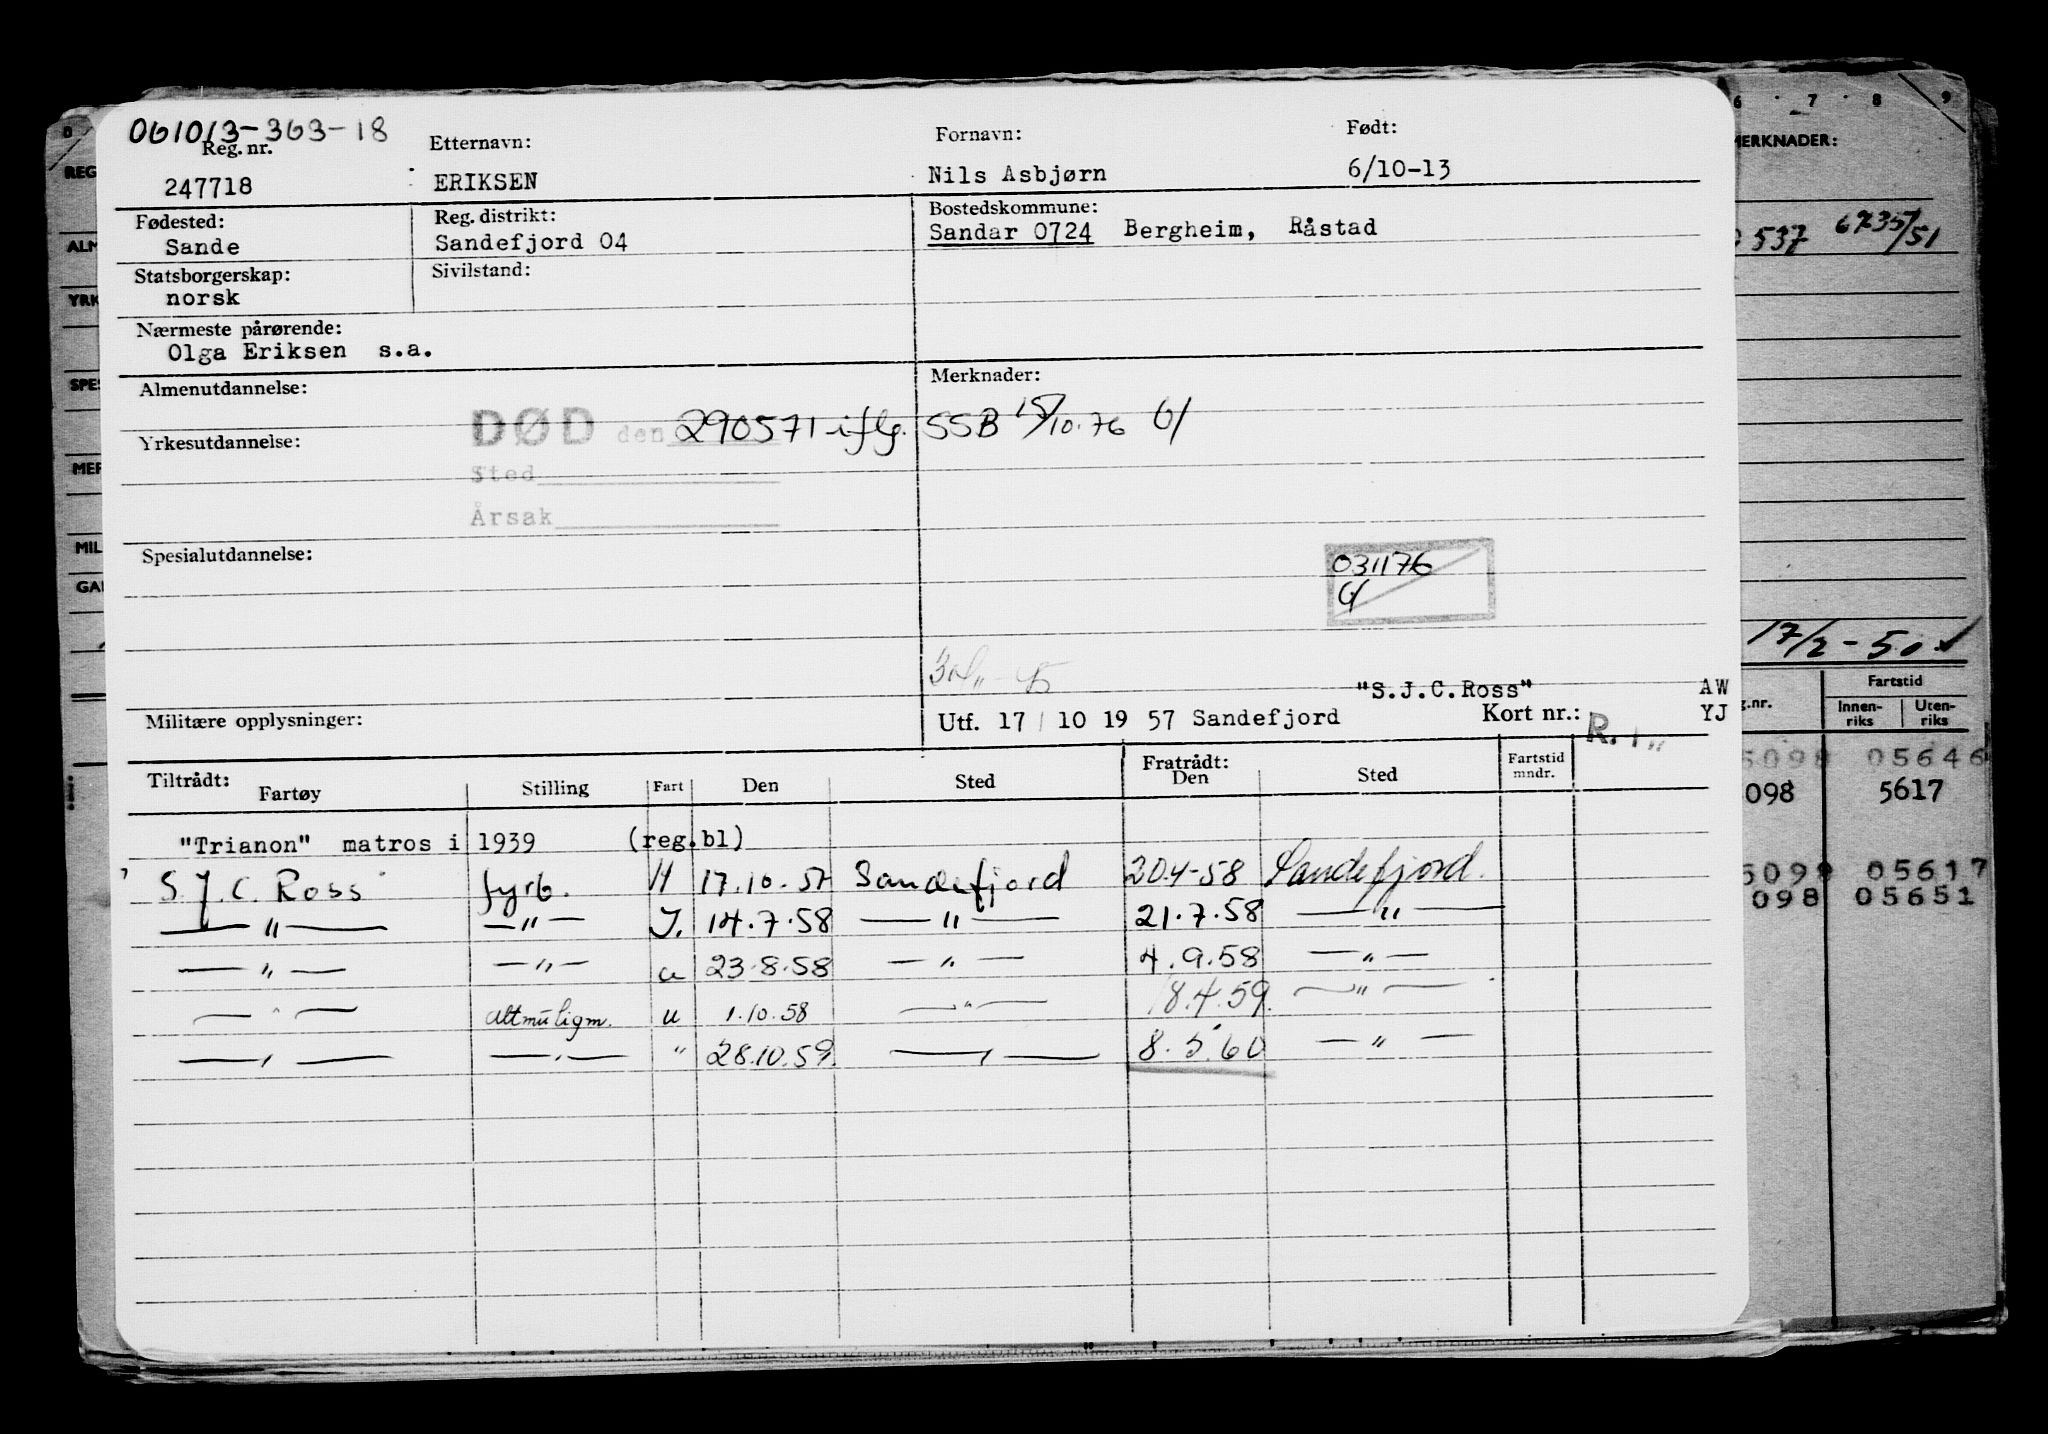 061013-363-18
Reg. nr. Etternavn: Fornavn: Født:
247718 ERIKSEN Nils Asbjørn 6/10-13
Fødested: Reg. distrikt: Bostedskommune:
Sande Sandefjord 04 Sandar 0724 Bergheim, Råstad
Statsborgerskap: Sivilstand:
norsk
Nærmeste pårørende:
Olga Eriksen s.a.
Almenutdannelse: Merknader:
DØD den 290571 iflg. SSB 15/10.76 G/
Yrkesutdannelse:
Sted
Årsak
Spesialutdannelse:
031176
G/
"S.J.C.Ross" AW
Militære opplysninger: Utf. 17/10 19 57 Sandefjord Kort nr.: YJ
Tiltrådt: Fratrådt:
Fartøy Stilling Fart Den Sted Den Sted Fartstid mndr.
"Trianon" matros i 1939 (reg.bl)
S.J.C. Ross fyrb. H 17.10.57 Sandefjord 20.4-58 Sandefjord.
— " — — " — J. 14.7.58 — " — 21.7.58 — " —
— " — — " — u 23.8.58 — " — 4.9.58 — " —
— " — altmuligm. u 1.10.58 — " — 18.4.59. — " —
— " — — " — " 28.10.59. — " — 8.5.60 — " —
6 7 8 9
MERKNADER:
537 6735/51
17/2-50
Fartstid
g.nr. Innen-riks Uten-riks
5098 05646
098 5617
5098 05617
098 05651
0
REG
ALM
YRK
SPES
MER
MIL
GAR